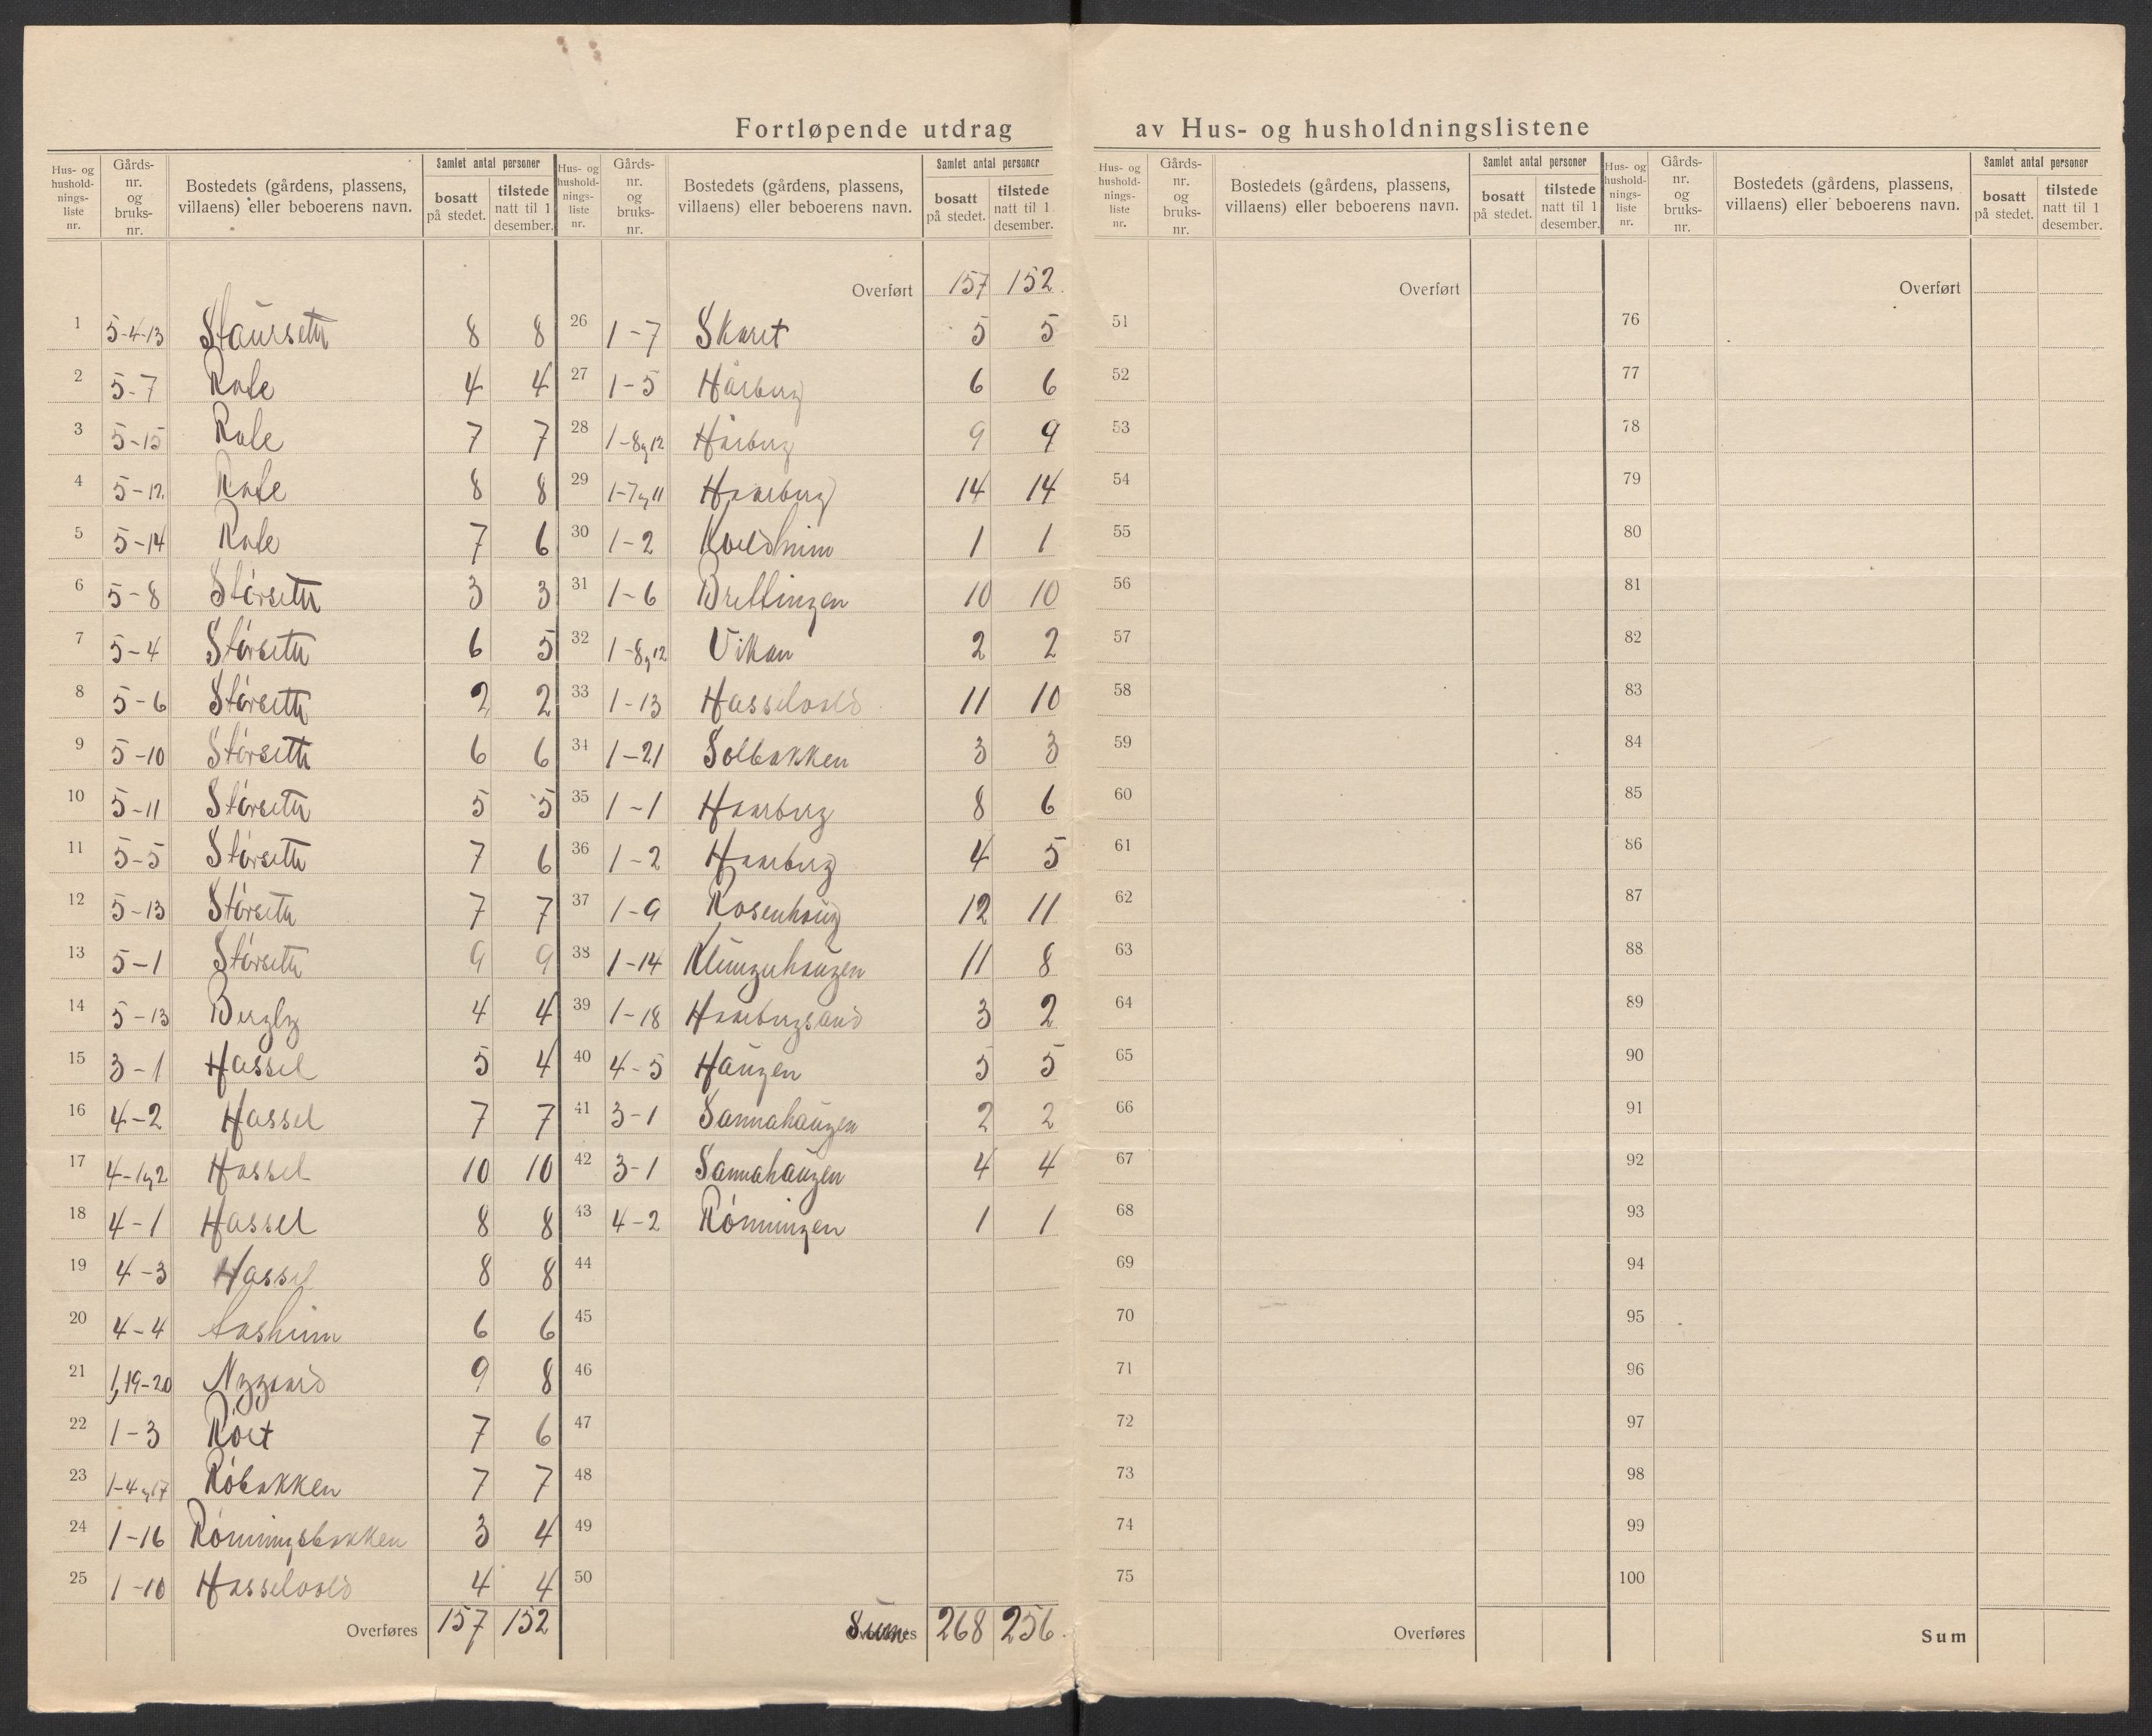 Fortløpende utdrag av Hus- og husholdningslistene
Hus- og hushold-nings-liste nr. Gårds-nr. og bruks-nr. Bostedets (gårdens, plassens, villaens) eller beboerens navn. Samlet antal personer bosatt på stedet. tilstede natt til 1 desember.
1 5-4-13 Staurseth 8 8
2 5-7 Rale 4 4
3 5-15 Rale 7 7
4 5-12 Rale 8 8
5 5-14 Rale 7 6
6 5-8 Størseth 3 3
7 5-4 Størseth 6 5
8 5-6 Størseth 2 2
9 5-10 Størseth 6 6
10 5-11 Størseth 5 5
11 5-5 Størseth 7 6
12 5-13 Størseth 7 7
13 5-1 Størseth 9 9
14 5-13 Bergly 4 4
15 3-1 Hassel 5 4
16 4-2 Hassel 7 7
17 4-1,2 Hassel 10 10
18 4-1 Hassel 8 8
19 4-3 Hassel 8 8
20 4-4 Aasheim 6 6
21 1,19-20 Nygaard 9 8
22 1-3 Røet 7 6
23 1-4 og 17 Røbakken 7 7
24 1-16 Rønningsbakken 3 4
25 1-10 Hasselvold 4 4
Overføres 157 152
Hus- og hushold-nings-liste nr. Gårds-nr. og bruks-nr. Bostedets (gårdens, plassens, villaens) eller beboerens navn. Samlet antal personer bosatt på stedet. tilstede natt til 1 desember.
Overført 157 152
26 1-7 Skaret 5 5
27 1-5 Hårberg 6 6
28 1-8 og 12 Hårberg 9 9
29 1-7 og 11 Haarberg 14 14
30 1-2 Kveldheim 1 1
31 1-6 Brettingen 10 10
32 1-8,12 Vikan 2 2
33 1-13 Hasselvold 11 10
34 1-21 Solbakken 3 3
35 1-1 Haarberg 8 6
36 1-2 Haarberg 4 5
37 1-9 Rosenhaug 12 11
38 1-14 Klungerhaugen 11 8
39 1-18 Haarbergsaud 3 2
40 4-5 Haugen 5 5
41 3-1 Sannahaugen 2 2
42 3-1 Sannahaugen 4 4
43 4-2 Rønningen 1 1
44
45
46
47
48
49
50
Sum 268 256
Hus- og hushold-nings-liste nr. Gårds-nr. og bruks-nr. Bostedets (gårdens, plassens, villaens) eller beboerens navn. Samlet antal personer bosatt på stedet. tilstede natt til 1 desember.
Overført
51
52
53
54
55
56
57
58
59
60
61
62
63
64
65
66
67
68
69
70
71
72
73
74
75
Overføres
Hus- og hushold-nings-liste nr. Gårds-nr. og bruks-nr. Bostedets (gårdens, plassens, villaens) eller beboerens navn. Samlet antal personer bosatt på stedet. tilstede natt til 1 desember.
Overført
76
77
78
79
80
81
82
83
84
85
86
87
88
89
90
91
92
93
94
95
96
97
98
99
100
Sum